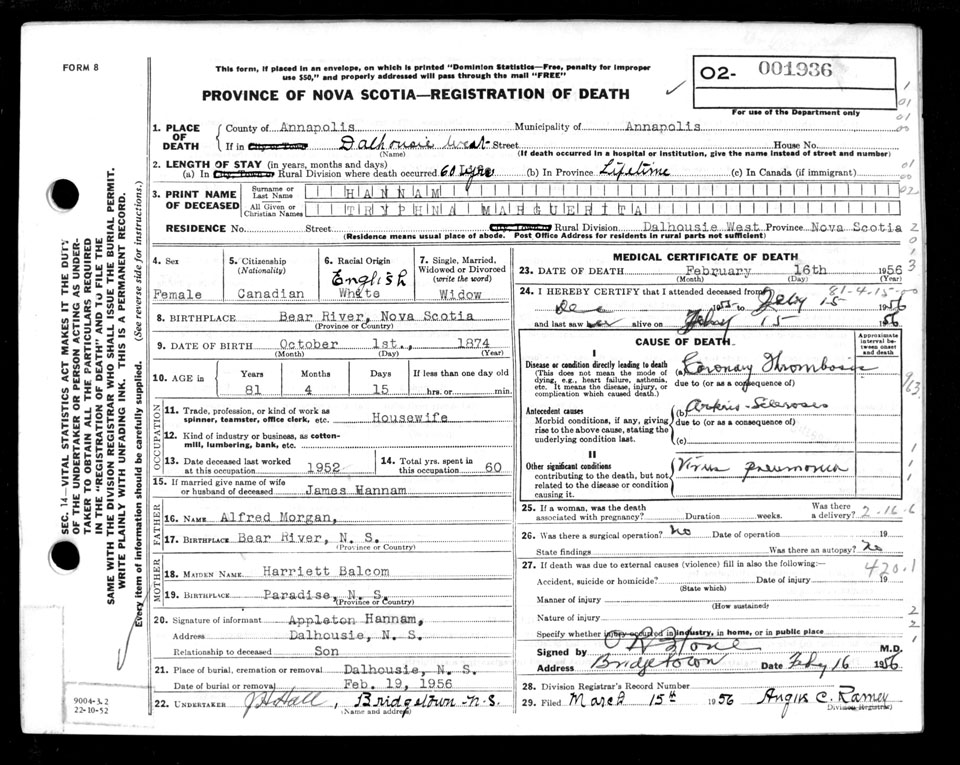 FORM 8
This form, if placed in an envelope, on which is printed "Dominion Statistics—Free, penalty for improper
use $50," and properly addressed will pass through the mail "FREE"
PROVINCE OF NOVA SCOTIA—REGISTRATION OF DEATH
02- 001936
For use of the Department only
1. PLACE OF DEATH
County of Annapolis Municipality of Annapolis
If in City or Town Dalhousie West Street House No.
(Name) (If death occurred in a hospital or institution, give the name instead of street and number)
2. LENGTH OF STAY (in years, months and days)
(a) In City, Town or Rural Division where death occurred 60 yrs (b) In Province Lifetime (c) In Canada (if immigrant)
3. PRINT NAME OF DECEASED
Surname or Last Name HANNAM
All Given or Christian Names TRYPHNA MARGUERITA
RESIDENCE No. Street City or Town or Rural Division Dalhousie West Province Nova Scotia
(Residence means usual place of abode. Post Office Address for residents in rural parts not sufficient)
4. Sex
Female
5. Citizenship
(Nationality)
Canadian
6. Racial Origin
English
White
7. Single, Married,
Widowed or Divorced
(write the word)
Widow
8. BIRTHPLACE Bear River, Nova Scotia
(Province or Country)
9. DATE OF BIRTH October 1st., 1874
(Month) (Day) (Year)
10. AGE in
Years Months Days If less than one day old
81 4 15 hrs. or min.
OCCUPATION
11. Trade, profession, or kind of work as
spinner, teamster, office clerk, etc. Housewife
12. Kind of industry or business, as cotton-
mill, lumbering, bank, etc.
13. Date deceased last worked
at this occupation 1952
14. Total yrs. spent in
this occupation 60
15. If married give name of wife
or husband of deceased James Hannam
FATHER
16. NAME Alfred Morgan,
17. BIRTHPLACE Bear River, N. S.
(Province or Country)
MOTHER
18. MAIDEN NAME Harriett Balcom
19. BIRTHPLACE Paradise, N. S.
(Province or Country)
20. Signature of informant Appleton Hannam,
Address Dalhousie, N. S.
Relationship to deceased Son
21. Place of burial, cremation or removal Dalhousie, N. S.
Date of burial or removal Feb. 19, 1956
22. UNDERTAKER J H Hall, Bridgetown N.S.
(Name and address)
MEDICAL CERTIFICATE OF DEATH
23. DATE OF DEATH February 16th 1956
(Month) (Day) (Year)
24. I HEREBY CERTIFY that I attended deceased from 81-4-15-00
Dec 1955 to Feby 15 1956
and last saw her alive on Feby 15 1956
CAUSE OF DEATH
Approximate
interval be-
tween onset
and death
I
Disease or condition directly leading to death
(This does not mean the mode of
dying, e.g., heart failure, asthenia,
etc. It means the disease, injury, or
complication which caused death.)
(a) Coronary Thrombosis
due to (or as a consequence of)
Antecedent causes
Morbid conditions, if any, giving
rise to the above cause, stating the
underlying condition last.
(b) Arterio-Sclerosis
due to (or as a consequence of)
(c)
II
Other significant conditions
contributing to the death, but not
related to the disease or condition
causing it.
Virus pneumonia
25. If a woman, was the death
associated with pregnancy? Duration weeks. Was there
a delivery? 2-16-6
26. Was there a surgical operation? No Date of operation 19
State findings Was there an autopsy? No
27. If death was due to external causes (violence) fill in also the following:—
420.1
Accident, suicide or homicide? Date of injury 19
(State which)
Manner of injury
(How sustained)
Nature of injury
Specify whether injury occurred in industry, in home, or in public place
Signed by Stone M.D.
Address Bridgetown Date Feby 16 1956
28. Division Registrar's Record Number
29. Filed March 15th 1956 Angus C. Ramey
Division Registrar
SEC. 14—VITAL STATISTICS ACT MAKES IT THE DUTY
OF THE UNDERTAKER OR PERSON ACTING AS UNDER-
TAKER TO OBTAIN ALL THE PARTICULARS REQUIRED
IN THE "REGISTRATION OF DEATH" AND TO FILE THE
SAME WITH THE DIVISION REGISTRAR WHO SHALL ISSUE THE BURIAL PERMIT.
WRITE PLAINLY WITH UNFADING INK. THIS IS A PERMANENT RECORD.
Every item of information should be carefully supplied. (See reverse side for instructions.)
9004-3.2
22-10-52